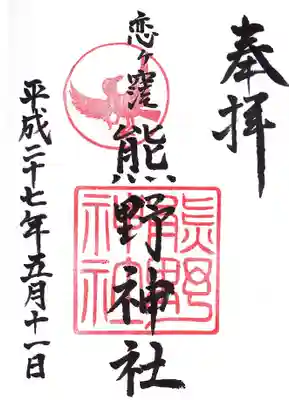 奉拝
恋ヶ窪
熊野神社
熊野
神社
平成二十七年五月十一日